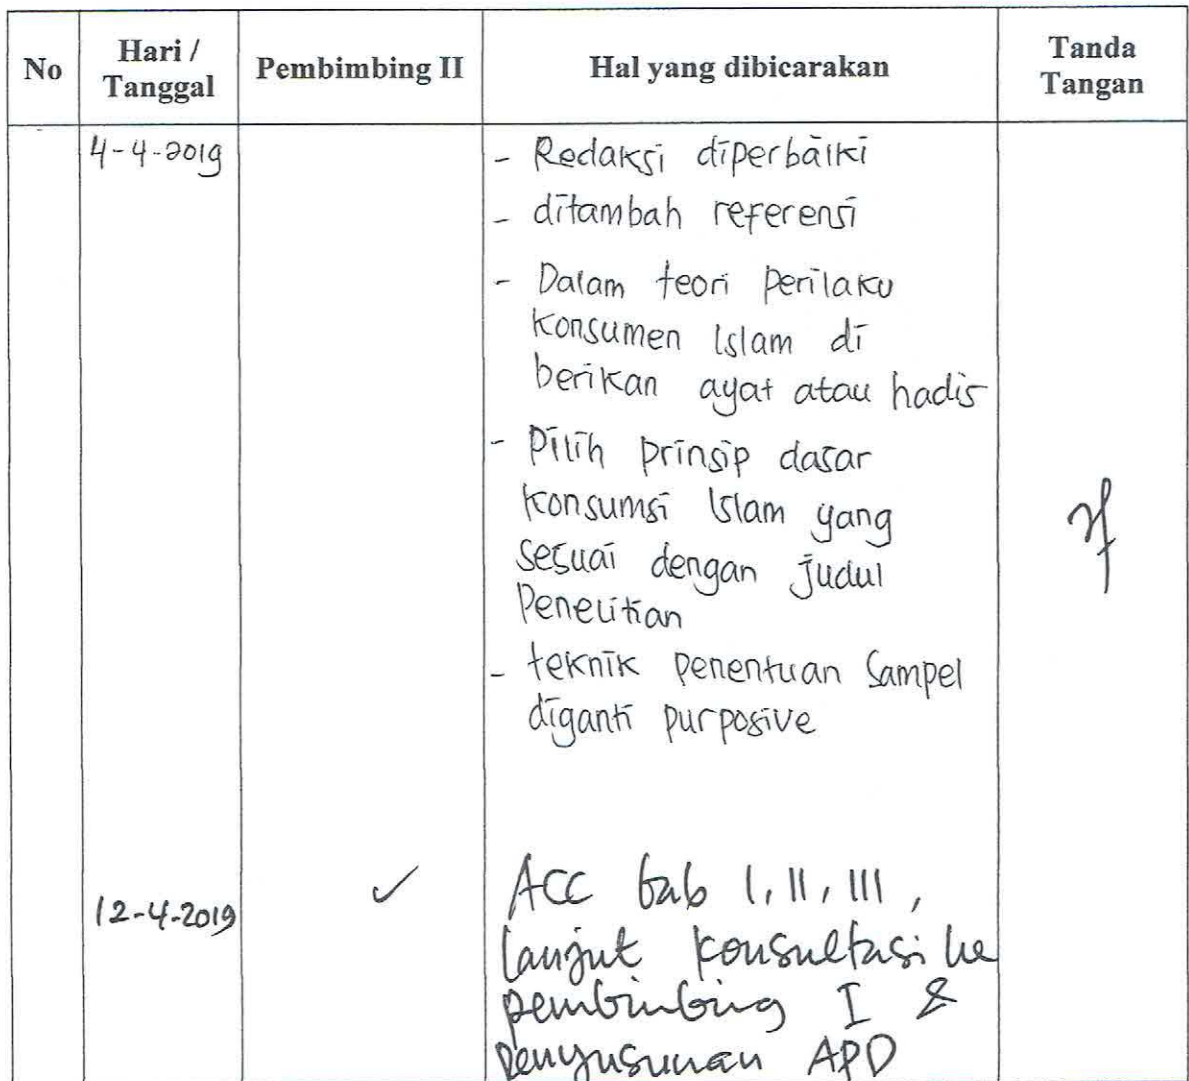 No
Hari /
Tanggal
Pembimbing II
Hal yang dibicarakan
Tanda
Tangan
4-4-2019
- Redaksi diperbaiki
- ditambah referensi
- Dalam teori Perilaku
Konsumen Islam di
berikan ayat atau hadis
- Pilih prinsip dasar
Konsumsi Islam yang
sesuai dengan judul
Penelitian
- teknik penentuan Sampel
diganti purposive
12-4-2019
✓
ACC bab I, II, III,
lanjut konsultasi ke
pembimbing I &
penyusunan APD